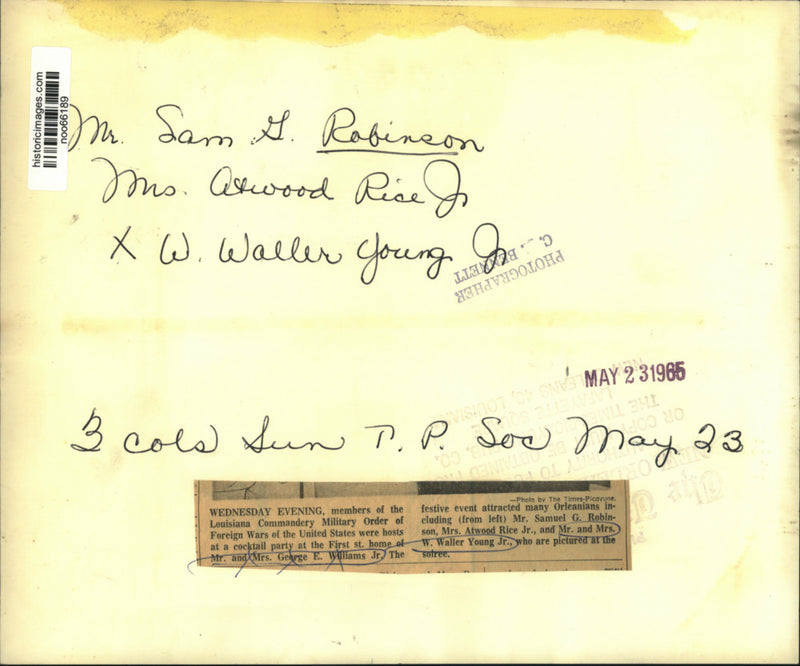 historicimages.com
noo66189
Mr. Sam G. Robinson
Mrs. Atwood Rice Jr
X W. Waller Young Jr
PHOTOGRAPHER
BENNETT
MAY 23 1965
3 cols Sun T. P. Soc May 23
WEDNESDAY EVENING, members of the
Louisiana Commandery Military Order of
Foreign Wars of the United States were hosts
at a cocktail party at the First st. home of
Mr. and Mrs. George E. Williams Jr. The
—Photo by The Times-Picayune.
festive event attracted many Orleanians in-
cluding (from left) Mr. Samuel G. Robin-
son, Mrs. Atwood Rice Jr., and Mr. and Mrs.
W. Waller Young Jr., who are pictured at the
soiree.